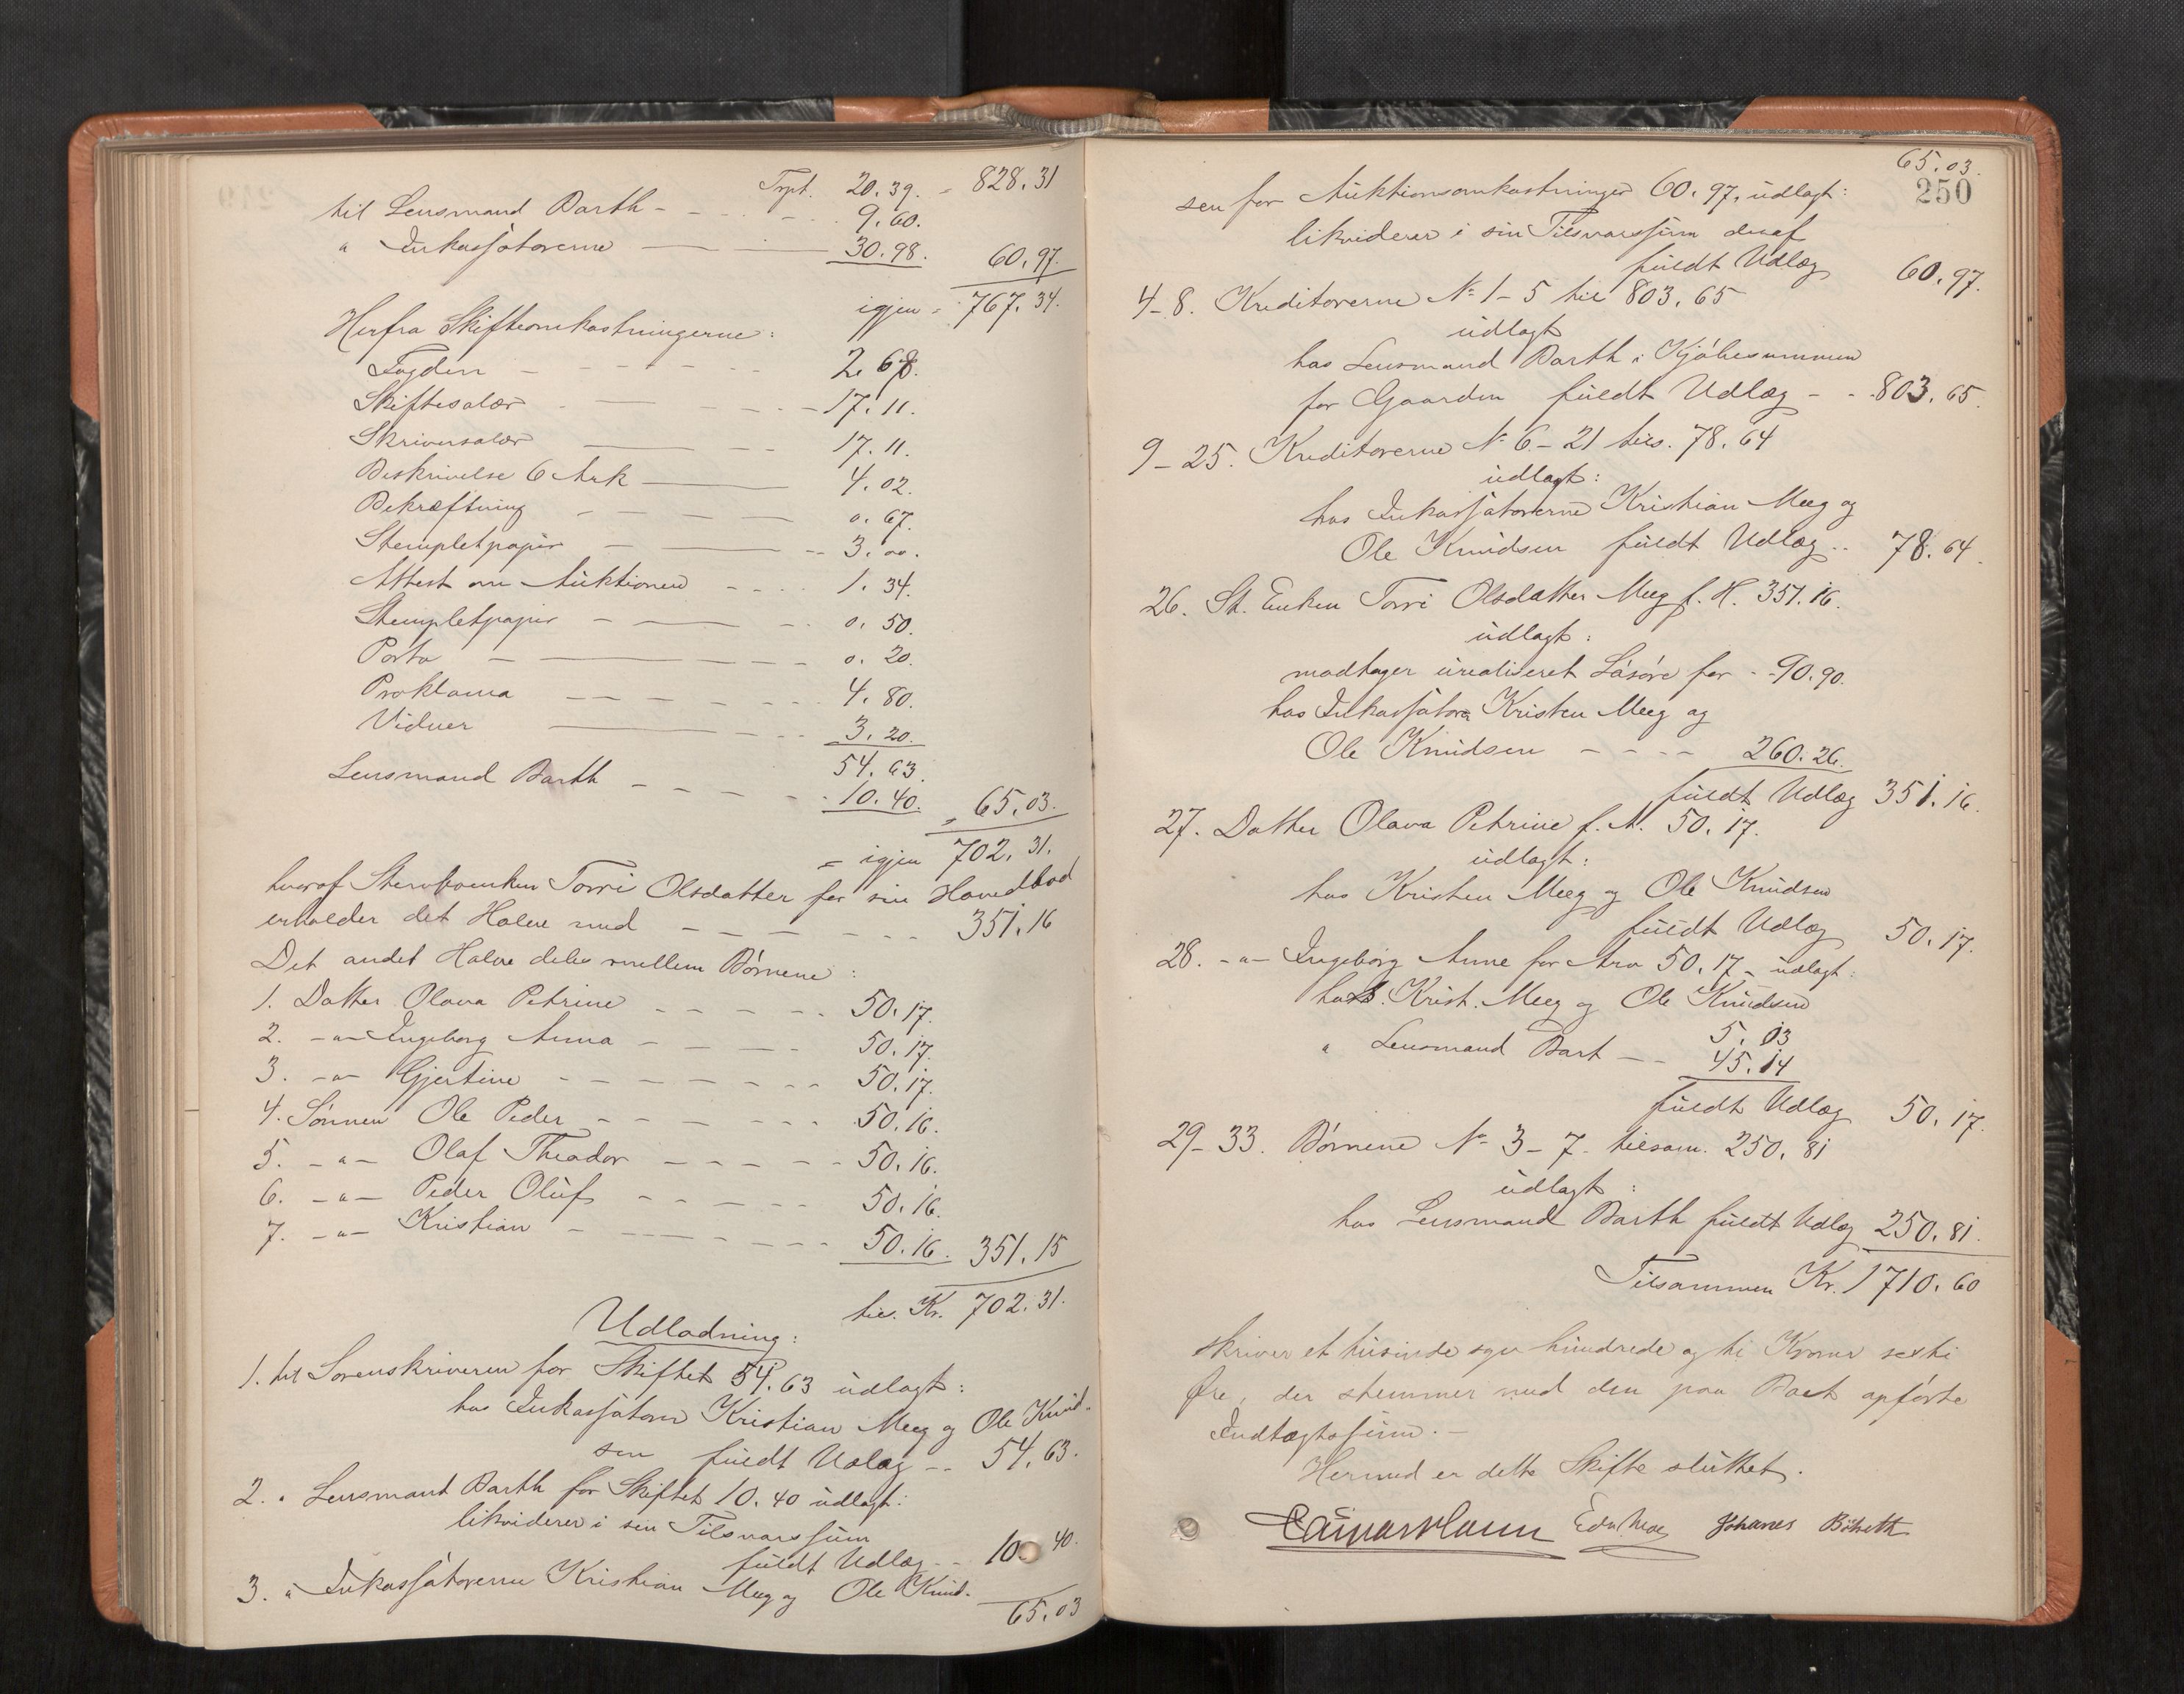 Trpt. 20.39. = 828.31
til Lensmand Barth - - - - 9.60.
" Inkassatorerne — — 30.98. 60.97.
igjen = 767.34.
Herfra Skifteomkostningerne:
Fogden - - - - - - 2.68.
Skiftesalær - — - - - 17.11.
Skriversalær — - - 17.11.
Beskrivelse 6 Ark — 4.02.
Bekræftning - - - - — 0.67.
Stempletpapir - — - - 3.00.
Attest om Auktionen - - - - 1.34.
Stempletpapir - — - - 0.50.
Porto - — - - - 0.20.
Proklama - - - - - - - 4.80.
Vidner — - - - 3.20.
54.63.
Lensmand Barth - - - - - 10.40. " 65.03.
= igjen 702.31.
hvoraf Stervboenken Torri Olsdatter for sin Hovedlod
erholder det Halve med - - - - - - - 351.16
Det andet Halve deles mellem Børnene:
1. Datter Olava Petrine - - - - - 50.17.
2. -"- Ingeborg Anna - - - - - 50.17.
3. -"- Gjertine - - - - - - - - 50.17.
4. Sønnen Ole Peder - - - - - - 50.16.
5. -"- Olaf Theodor - - - - - 50.16.
6. -"- Peder Oluf - - - - - 50.16.
7. -"- Kristian - - - - - - - 50.16. 351.15
tils. Kr. 702.31.
Udlodning:
1. til Sorenskriveren for Skiftet 54.63 udlagt:
hos Inkassatorn Kristian Meeg og Ole Knud-
sen fuldt Udlæg - - 54.63.
2. " Lensmand Barth for Skiftet 10.40 udlagt:
likviderer i sin Tilsvarssum
fuldt Udlæg - - 10.40.
3. " Inkassatorerne Kristian Meeg og Ole Knud-
65.03
65.03.
250
sen for Auktionsomkostninger 60.97, udlagt:
likviderer i sin Tilsvarssum deraf
fuldt Udlæg 60.97.
4-8. Kreditorerne No 1-5 til 803.65
udlagt
hos Lensmand Barth i Kjøbesummen
for Gaarden fuldt Udlæg - - 803.65.
9-25. Kreditorerne No 6-21 tils. 78.64
udlagt:
hos Inkassatorerne Kristian Meeg og
Ole Knudsen fuldt Udlæg - - 78.64.
26. St. Enken Torri Olsdatter Meeg f. H. 351.16.
udlagt:
modtager urealiseret Løsøre for - - 90.90.
hos Inkassatorn Kristen Meeg og
Ole Knudsen - - - - 260.26.
fuldt Udlæg 351.16.
27. Datter Olava Petrine f. A. 50.17.
udlagt:
hos Kristen Meeg og Ole Knudsen
fuldt Udlæg 50.17.
28. -"- Ingeborg Anne for Arv 50.17 - udlagt:
hos Krist. Meeg og Ole Knudsen
5.03
" Lensmand Bart - - 45.14
fuldt Udlæg 50.17.
29-33. Børnene No 3-7 tilsam. 250.81
udlagt:
hos Lensmand Barth fuldt Udlæg 250.81.
Tilsammen Kr. 1710.60
skriver et tusinde syv hundrede og ti Kroner sexti
Øre, der stemmer med den paa Boet opførte
Indtægtssum. -
Hermed er dette Skifte sluttet.
Johanes